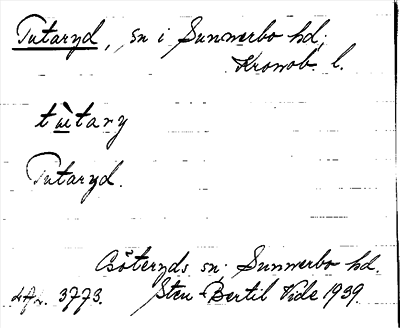 Tutaryd, sn i Sunnerbo hd,
Kronob. l.
tùtary
Tutaryd.
Göteryds sn. Sunnerbo hd.
3773. Sten-Bertil Vide 1939.